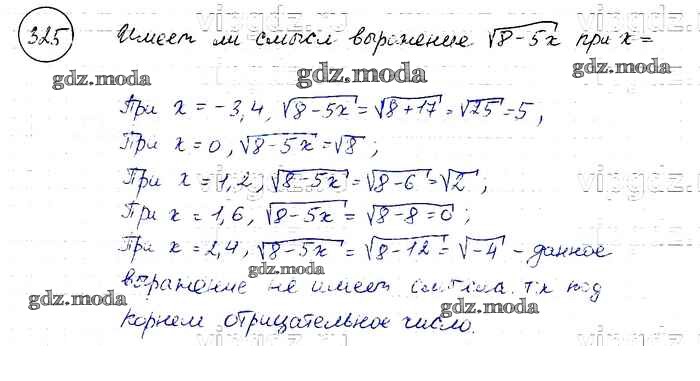 325 Имеет ли смысл выражение √8-5x при x=
gdz.moda gdz.moda gdz.moda
При x = -3,4, √8-5x = √8+17 = √25 = 5,
При x = 0, √8-5x = √8;
При x = 1,2, √8-5x = √8-6 = √2;
При x = 1,6, √8-5x = √8-8=0;
При x = 2,4, √8-5x = √8-12 = √-4 - данное
gdz.moda gdz.moda
выражение не имеет смысла т.к под
gdz.moda gdz.moda
корнем отрицательное число.